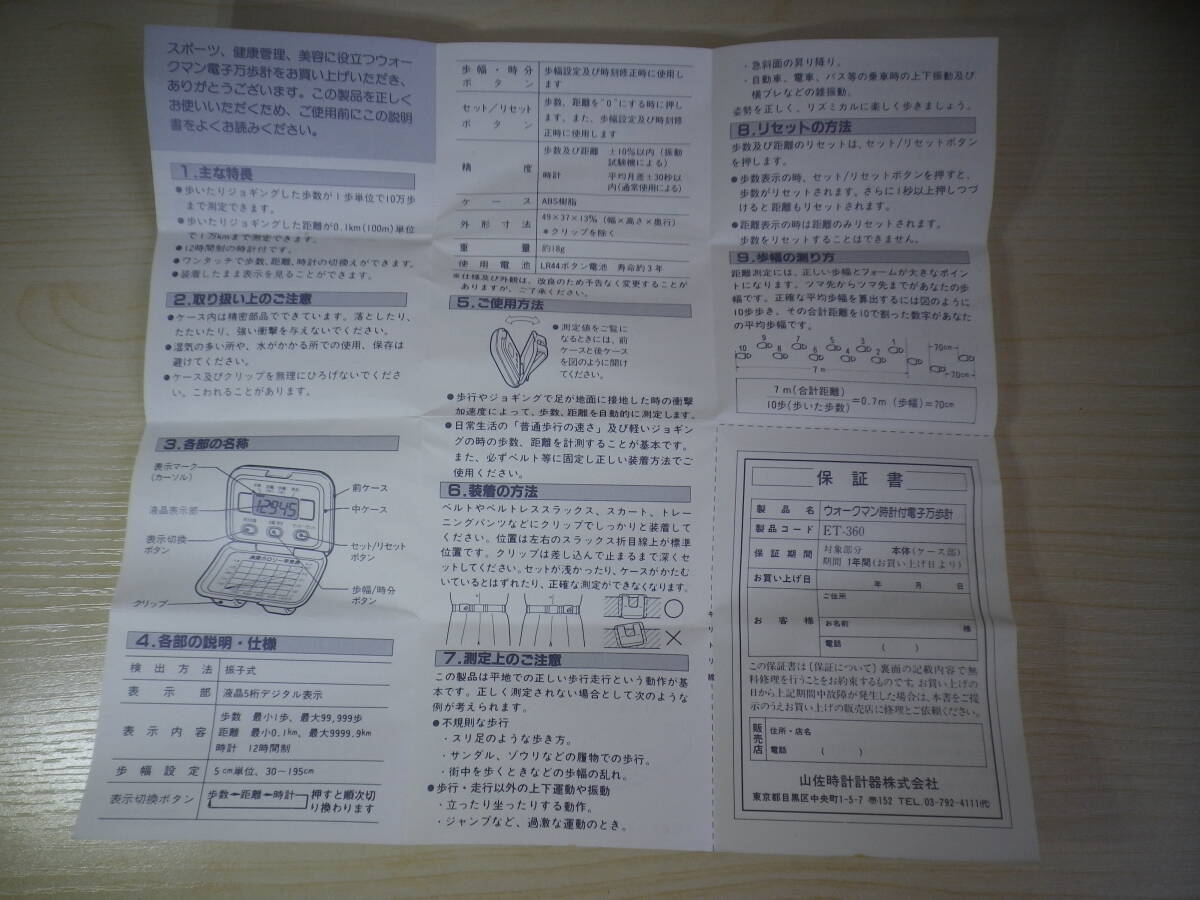 スポーツ、健康管理、美容に役立つウオー
クマン電子万歩計をお買い上げいただき、
ありがとうございます。この製品を正しく
お使いいただくため、ご使用前にこの説明
書をよくお読みください。
1.主な特長
●歩いたりジョギングした歩数が1歩単位で10万歩
まで測定できます。
●歩いたりジョギングした距離が0.1km(100m)単位
で1万kmまで測定できます。
●12時間制の時計付です。
●ワンタッチで歩数、距離、時計の切換えができます。
●装着したまま表示を見ることができます。
2.取り扱い上のご注意
●ケース内は精密部品でできています。落としたり、
たたいたり、強い衝撃を与えないでください。
●湿気の多い所や、水がかかる所での使用、保存は
避けてください。
●ケース及びクリップを無理にひろげないでくださ
い。こわれることがあります。
3.各部の名称
表示マーク
(カーソル)
液晶表示部
表示切換
ボタン
クリップ
12945
前ケース
中ケース
セット/リセット
ボタン
歩幅/時分
ボタン
4.各部の説明・仕様
検出方法 振子式
表示部 液晶5桁デジタル表示
表示内容
歩数 最小1歩、最大99,999歩
距離 最小0.1km、最大9999.9km
時計 12時間制
歩幅設定 5cm単位、30〜195cm
表示切換ボタン 歩数→距離→時計 押すと順次切
り換わります
歩幅・時分
ボタン
歩幅設定及び時刻修正時に使用し
ます
セット/リセット
ボタン
歩数、距離を"0"にする時に押し
ます。また、歩幅設定及び時刻修
正時に使用します
精度
歩数及び距離 ±10%以内(振動
試験機による)
時計 平均月差±30秒以
内(通常使用による)
ケース ABS樹脂
外形寸法 49×37×13㎜(幅×高さ×奥行)
*クリップを除く
重量 約18g
使用電池 LR44ボタン電池 寿命約3年
※仕様及び外観は、改良のため予告なく変更することが
ありますが、ご了承ください。
5.ご使用方法
●測定値をご覧に
なるときには、前
ケースと後ケース
を図のように開け
てください。
●歩行やジョギングで足が地面に接地した時の衝撃
加速度によって、歩数、距離を自動的に測定します。
●日常生活の「普通歩行の速さ」及び軽いジョギン
グの時の歩数、距離を計測することが基本です。
また、必ずベルト等に固定し正しい装着方法でご
使用ください。
6.装着の方法
ベルトやベルトレススラックス、スカート、トレー
ニングパンツなどにクリップでしっかりと装着して
ください。位置は左右のスラックス折目線上が標準
位置です。クリップは差し込んで止まるまで深くセ
ットしてください。セットが浅かったり、ケースがかたむ
いているとはずれたり、正確な測定ができなくなります。
7.測定上のご注意
この製品は平地での正しい歩行走行という動作が基
本です。正しく測定されない場合として次のような
例が考えられます。
●不規則な歩行
・スリ足のような歩き方。
・サンダル、ゾウリなどの履物での歩行。
・街中を歩くときなどの歩幅の乱れ。
●歩行・走行以外の上下運動や振動
・立ったり坐ったりする動作。
・ジャンプなど、過激な運動のとき。
・急斜面の昇り降り。
・自動車、電車、バス等の乗車時の上下振動及び
横ブレなどの雑振動。
姿勢を正しく、リズミカルに楽しく歩きましょう。
8.リセットの方法
歩数及び距離のリセットは、セット/リセットボタン
を押します。
●歩数表示の時、セット/リセットボタンを押すと、
歩数がリセットされます。さらに1秒以上押しつづ
けると距離もリセットされます。
●距離表示の時は距離のみリセットされます。
歩数をリセットすることはできません。
9.歩幅の測り方
距離測定には、正しい歩幅とフォームが大きなポイン
トになります。ツマ先からツマ先まであなたの歩
幅です。正確な平均歩幅を算出するには図のように
10歩歩き、その合計距離を10で割った数字があなた
の平均歩幅です。
10 9 8 7 6 5 4 3 2 1
7m
70cm
70cm
7m(合計距離)
10歩(歩いた歩数)
=0.7m(歩幅)=70cm
キリトリ線
保証書
製品名 ウオークマン時計付電子万歩計
製品コード ET-360
保証期間
対象部分 本体(ケース部)
期間 1年間(お買い上げ日より)
お買い上げ日 年 月 日
お客様
ご住所
お名前 様
電話 ( )
この保証書は〔保証について〕裏面の記載内容で無
料修理を行うことをお約束するものです。お買い上げの
日から上記期間中故障が発生した場合は、本書をご提
示のうえお買い上げの販売店に修理とご依頼ください。
販売店
住所・店名
電話 ( )
山佐時計計器株式会社
東京都目黒区中央町1-5-7 〒152 TEL.03-792-4111㈹